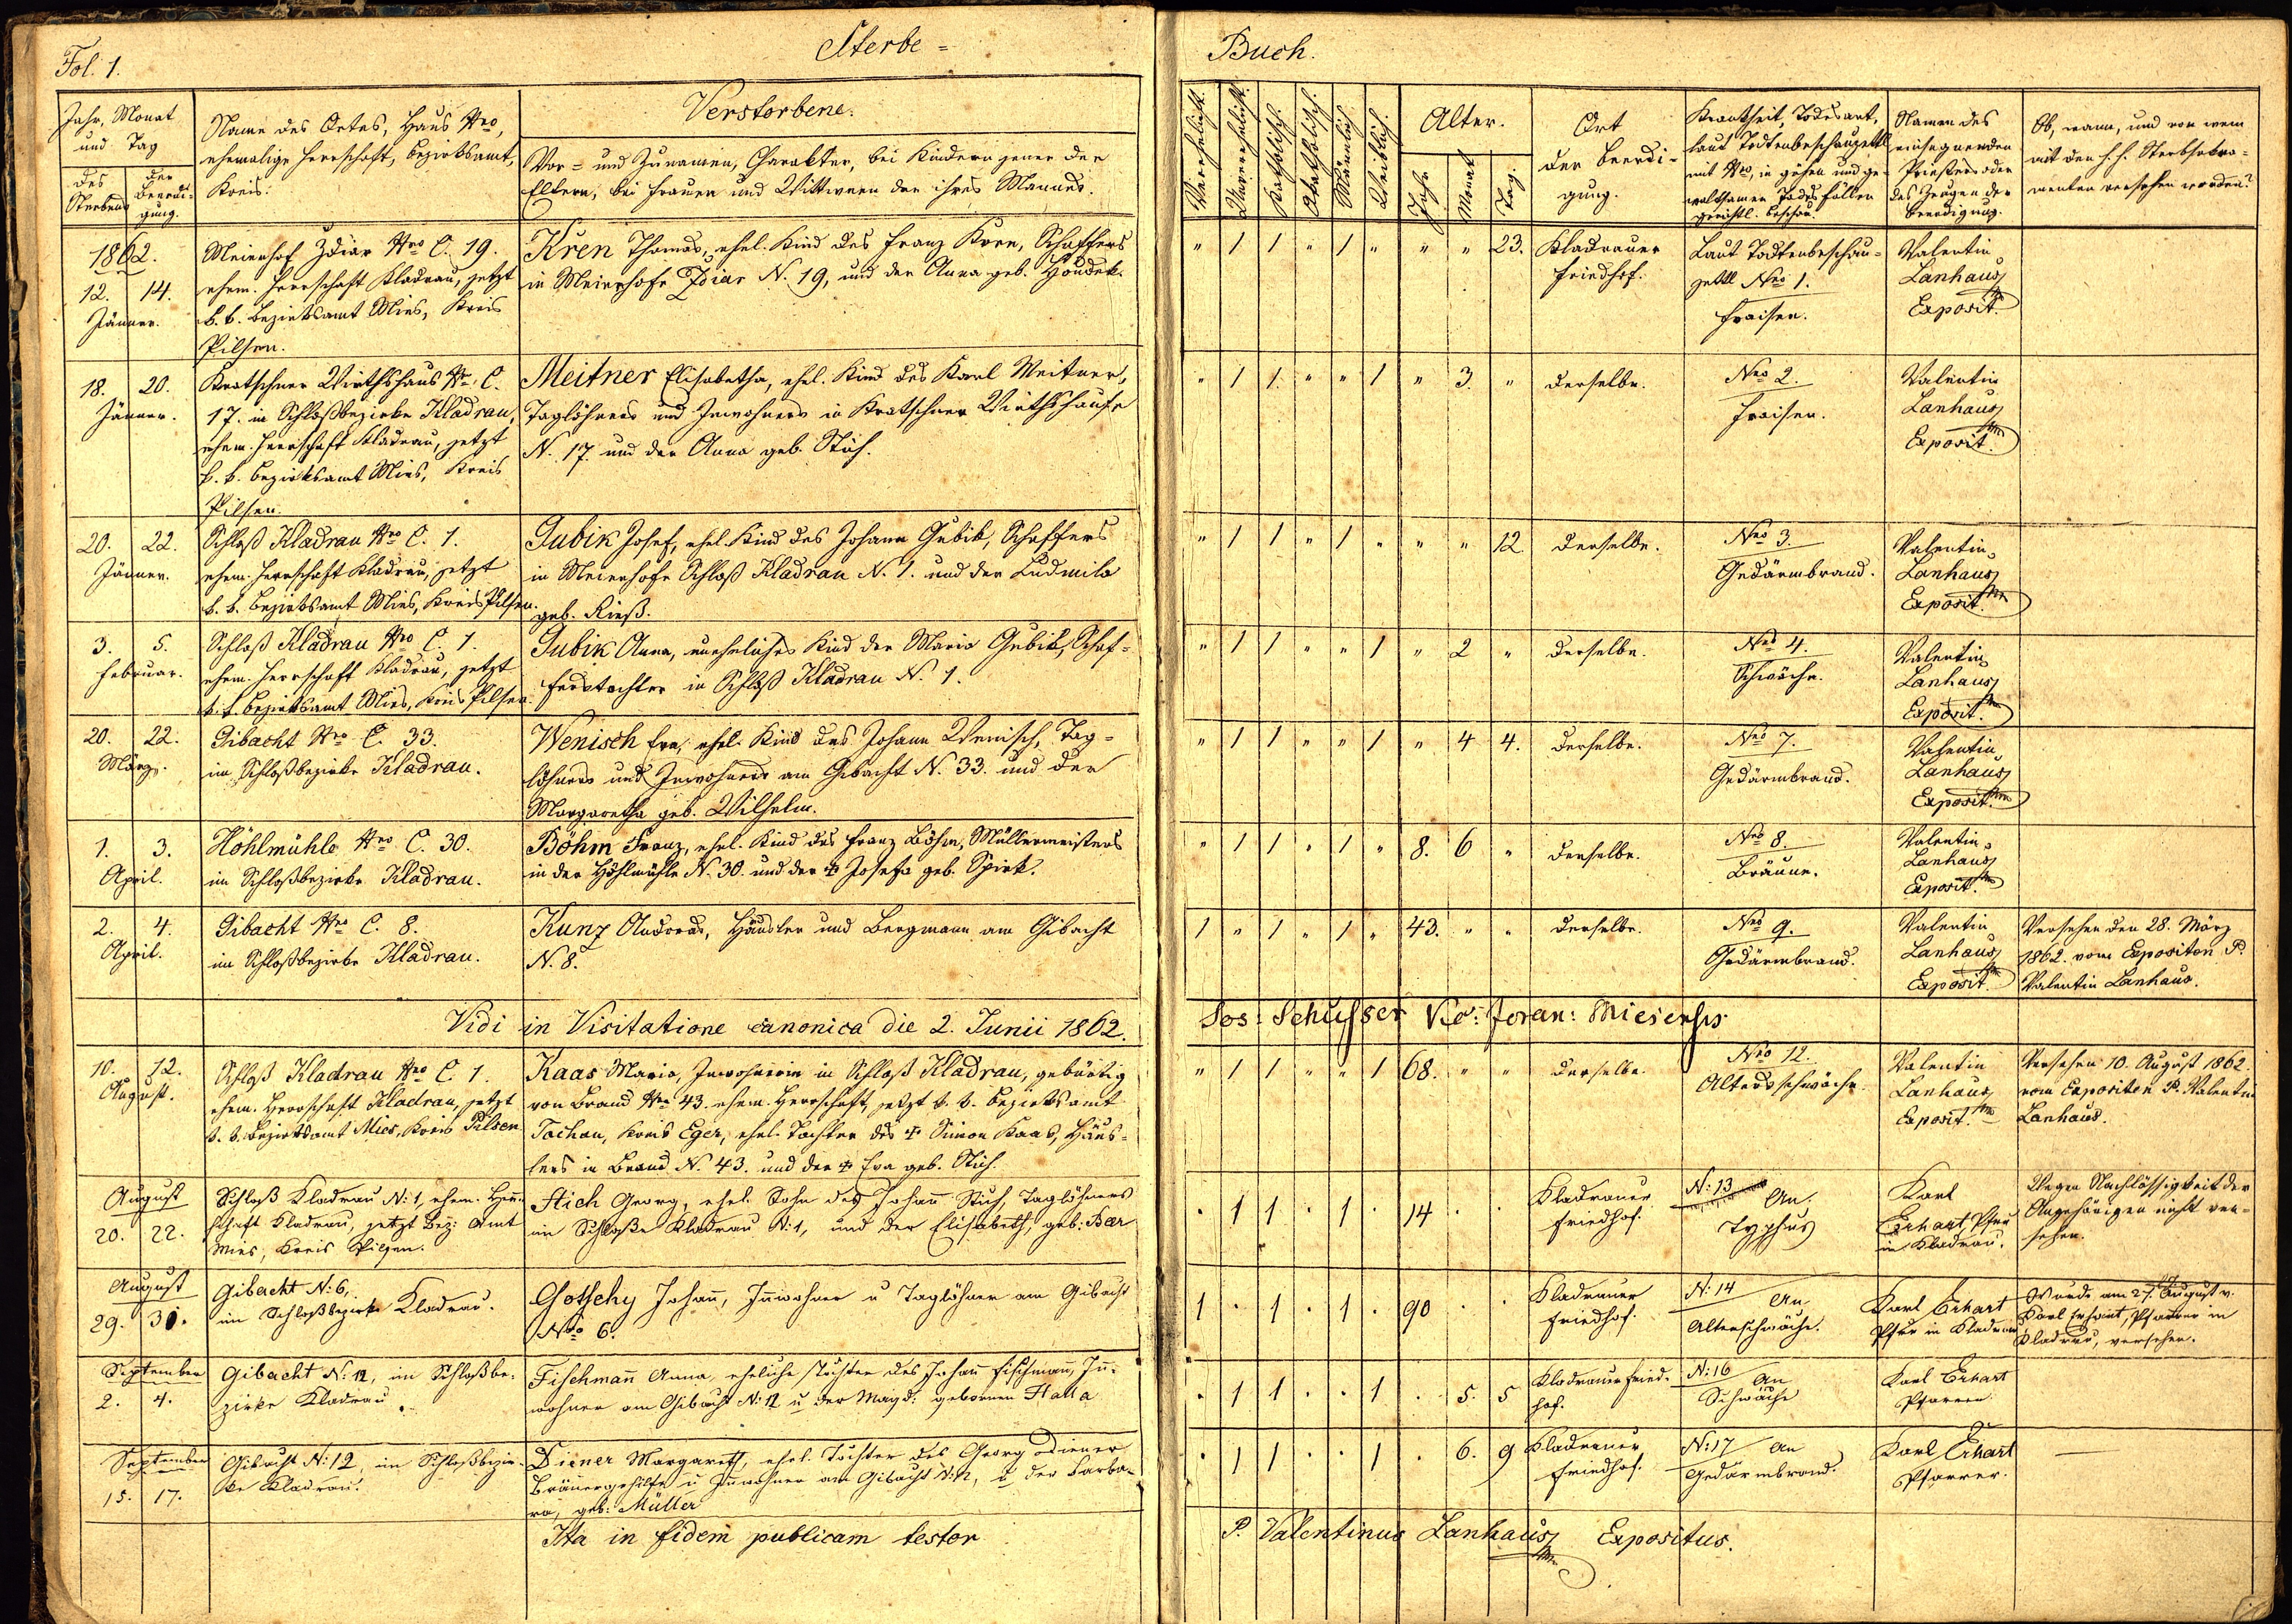 Fol. 1.
Sterbe =
Buch.
Jahr, Monat
und Tag
des
Sterbens
der
Beerdi-
gung.
Name des Ortes, Haus Nro,
ehemalige Herrschaft, Bezirksamt,
Kreis.
Verstorbene.
Vor = und Zunamen, Charakter, bei Kindern jener der
Eltern, bei Frauen und Wittwen der ihres Mannes.
Verehelicht.
Unverehelicht.
Katholisch.
Akatholisch.
Männlich.
Weiblich.
Alter.
Jahr
Monat
Tag.
Ort
der Beerdi-
gung.
Krankheit, Todesart,
laut Todtenbeschauzettl
mit Nro, in gähen und ge-
waltsamen Todesfällen
gerichtl. Beschau.
Namen des
einsegnenden
Priesters oder
des Zeugen der
Beerdigung.
Ob, wann, und von wem
mit den h. h. Sterbsakra-
menten versehen worden?
1862.
12. 14.
Jänner.
Meierhof Zdiar Nro C. 19.
ehem. Herrschaft Kladrau, jetzt
k. k. Bezirksamt Mies, Kreis
Pilsen.
Kren Thomas, ehel. Kind des Franz Kren, Schaffers
in Meierhofe Zdiar N. 19, und der Anna geb. Houdek.
" 1 1 " 1 " " " 23.
Kladrauer
Friedhof.
Laut Todtenbeschau-
zettl Nro 1.
Fraisen.
Valentin
Lanhaus
Exposit.
18. 20.
Jänner.
Kratschner Wirthshaus Nr. C.
17. in Schloßbezirke Kladrau,
ehem. Herrschaft Kladrau, jetzt
k. k. Bezirksamt Mies, Kreis
Pilsen.
Meitner Elisabetha, ehel. Kind des Karl Meitner,
Taglöhners und Inwohners in Kratschner Wirthshause
N. 17. und der Anna geb. Stich.
" 1 1. " " 1 " 3. "
derselbe.
Nro 2.
Fraisen.
Valentin
Lanhaus
Exposit.
20. 22.
Jänner.
Schloß Kladrau Nro C. 1.
ehem. Herrschaft Kladrau, jetzt
k. k. Bezirksamt Mies, Kreis Pilsen.
Gubik Josef, ehel. Kind des Johann Gubik, Schaffers
in Meierhofe Schloß Kladrau N. 1. und der Ludmila
geb. Rieß.
" 1 1 " 1 " " " 12
derselbe.
Nro 3.
Gedärmbrand.
Valentin
Lanhaus
Exposit.
3. 5.
Februar.
Schloß Kladrau Nro C. 1.
ehem. Herrschaft Kladrau, jetzt
k. k. Bezirksamt Mies, Kreis Pilsen.
Gubik Anna, uneheliches Kind der Maria Gubik, Schaf-
ferstochter in Schloß Kladrau N. 1.
" 1 1 " " 1 " 2 "
derselbe.
Nro 4.
Schwäche.
Valentin
Lanhaus
Exposit.
20. 22.
März.
Gibacht Nro C. 33.
im Schloßbezirke Kladrau.
Wenisch Eva, ehel. Kind des Johann Wenisch, Tag-
löhners und Inwohners am Gibacht N. 33. und der
Margaretha geb. Wilhelm.
" 1 1 " " 1 " 4 4.
derselbe.
Nro 7.
Gedärmbrand.
Valentin
Lanhaus
Exposit.
1. 3.
April.
Höhlmühle Nro C. 30.
im Schloßbezirke Kladrau.
Böhm Franz, ehel. Kind des Franz Böhm, Müllermeisters
in der Höhlmühle N. 30. und der + Josefa geb. Spirk.
" 1 1 " 1 " 8. 6 "
derselbe.
Nro 8.
Bräune.
Valentin
Lanhaus
Exposit.
2. 4.
April.
Gibacht Nro C. 8.
im Schloßbezirke Kladrau.
Kunz Andreas, Häusler und Bergmann am Gibacht
N. 8.
1 " 1 " 1 " 43. " "
derselbe.
Nro 9.
Gedärmbrand.
Valentin
Lanhaus
Exposit.
Versehen den 28. März
1862. vom Expositen P.
Valentin Lanhaus.
Vidi in Visitatione canonica die 2. Junii 1862.
Jos: Schusser Vic: foran: Miesensis.
10. 12.
August.
Schloß Kladrau Nro C. 1.
ehem. Herrschaft Kladrau, jetzt
k. k. Bezirksamt Mies, Kreis Pilsen
Kaas Maria, Inwohnerin in Schloß Kladrau, gebürtig
von Brand Nro 43. ehem. Herrschaft, jetzt k. k. Bezirksamt
Tachau, Kreis Eger, ehel. Tochter des + Simon Kaas, Häus-
lers in Brand N. 43. und der + Eva geb. Stich.
" 1 1 " " 1 68. " "
derselbe.
Nro 12.
Altersschwäche.
Valentin
Lanhaus
Exposit.
Versehen 10. August 1862.
vom Expositen P. Valentin
Lanhaus.
August
20. 22.
Schloß Kladrau N: 1, ehem. Herr-
schaft Kladrau, jetzt Bez: Amt
Mies, Kreis Pilsen.
Stich Georg, ehel. Sohn des Johann Stich, Taglöhners
im Schloße Kladrau N: 1, und der Elisabeth, geb: Baer
. 1 1 . 1 . 14 . .
Kladrauer
Friedhof.
N: 13
An
Typhus
Karl
Erhart, Pfarr
in Kladrau.
Wegen Nachlässigkeit der
Angehörigen nicht ver-
sehen.
August
29. 30.
Gibacht N: 6,
im Schloßbezirke Kladrau.
Gotschy Johann, Innwohner u Taglöhner am Gibacht
Nro 6.
1 . 1 . 1 . 90 . .
Kladrauer
Friedhof.
N: 14
An
Altersschwäche.
Karl Erhart
Pfarr in Kladrau
Wurde am 27. August v.
Karl Erhart, Pfarrer in
Kladrau, versehen.
September
2. 4.
Gibacht N: 12, im Schloßbe-
zirke Kladrau.
Fischmann Anna, eheliche Tochter des Johann Fischmann, In-
wohner am Gibacht N: 12 u der Magd: gebornen Halla
. 1 1 . . 1 . 5. 5
Kladrauer Fried-
hof.
N: 16
An
Schwäche
Karl Erhart
Pfarrer.
September
15. 17.
Gibacht N: 12 im Schloßbezir-
ke Kladrau.
Diener Margareth, ehel. Tochter des Georg Diener
Bräuergehilfe u Innwohner am Gibacht N: 12, u der Barba-
ra, geb: Müller
. 1 1 . . 1 . 6. 9
Kladrauer
Friedhof.
N: 17 An
Gedärmbrand.
Karl Erhart
Pfarrer.
Ita in fidem publicam testor
P. Valentinus Lanhaus Expositus.